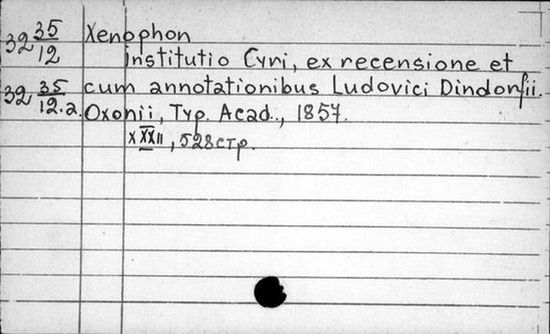 32 35/12 Xenophon
Institutio Cyri, ex recensione et
32 35/12.a. cum annotationibus Ludovici Dindorfii.
Oxonii, Typ. Acad., 1857.
XXXII, 528 стр.